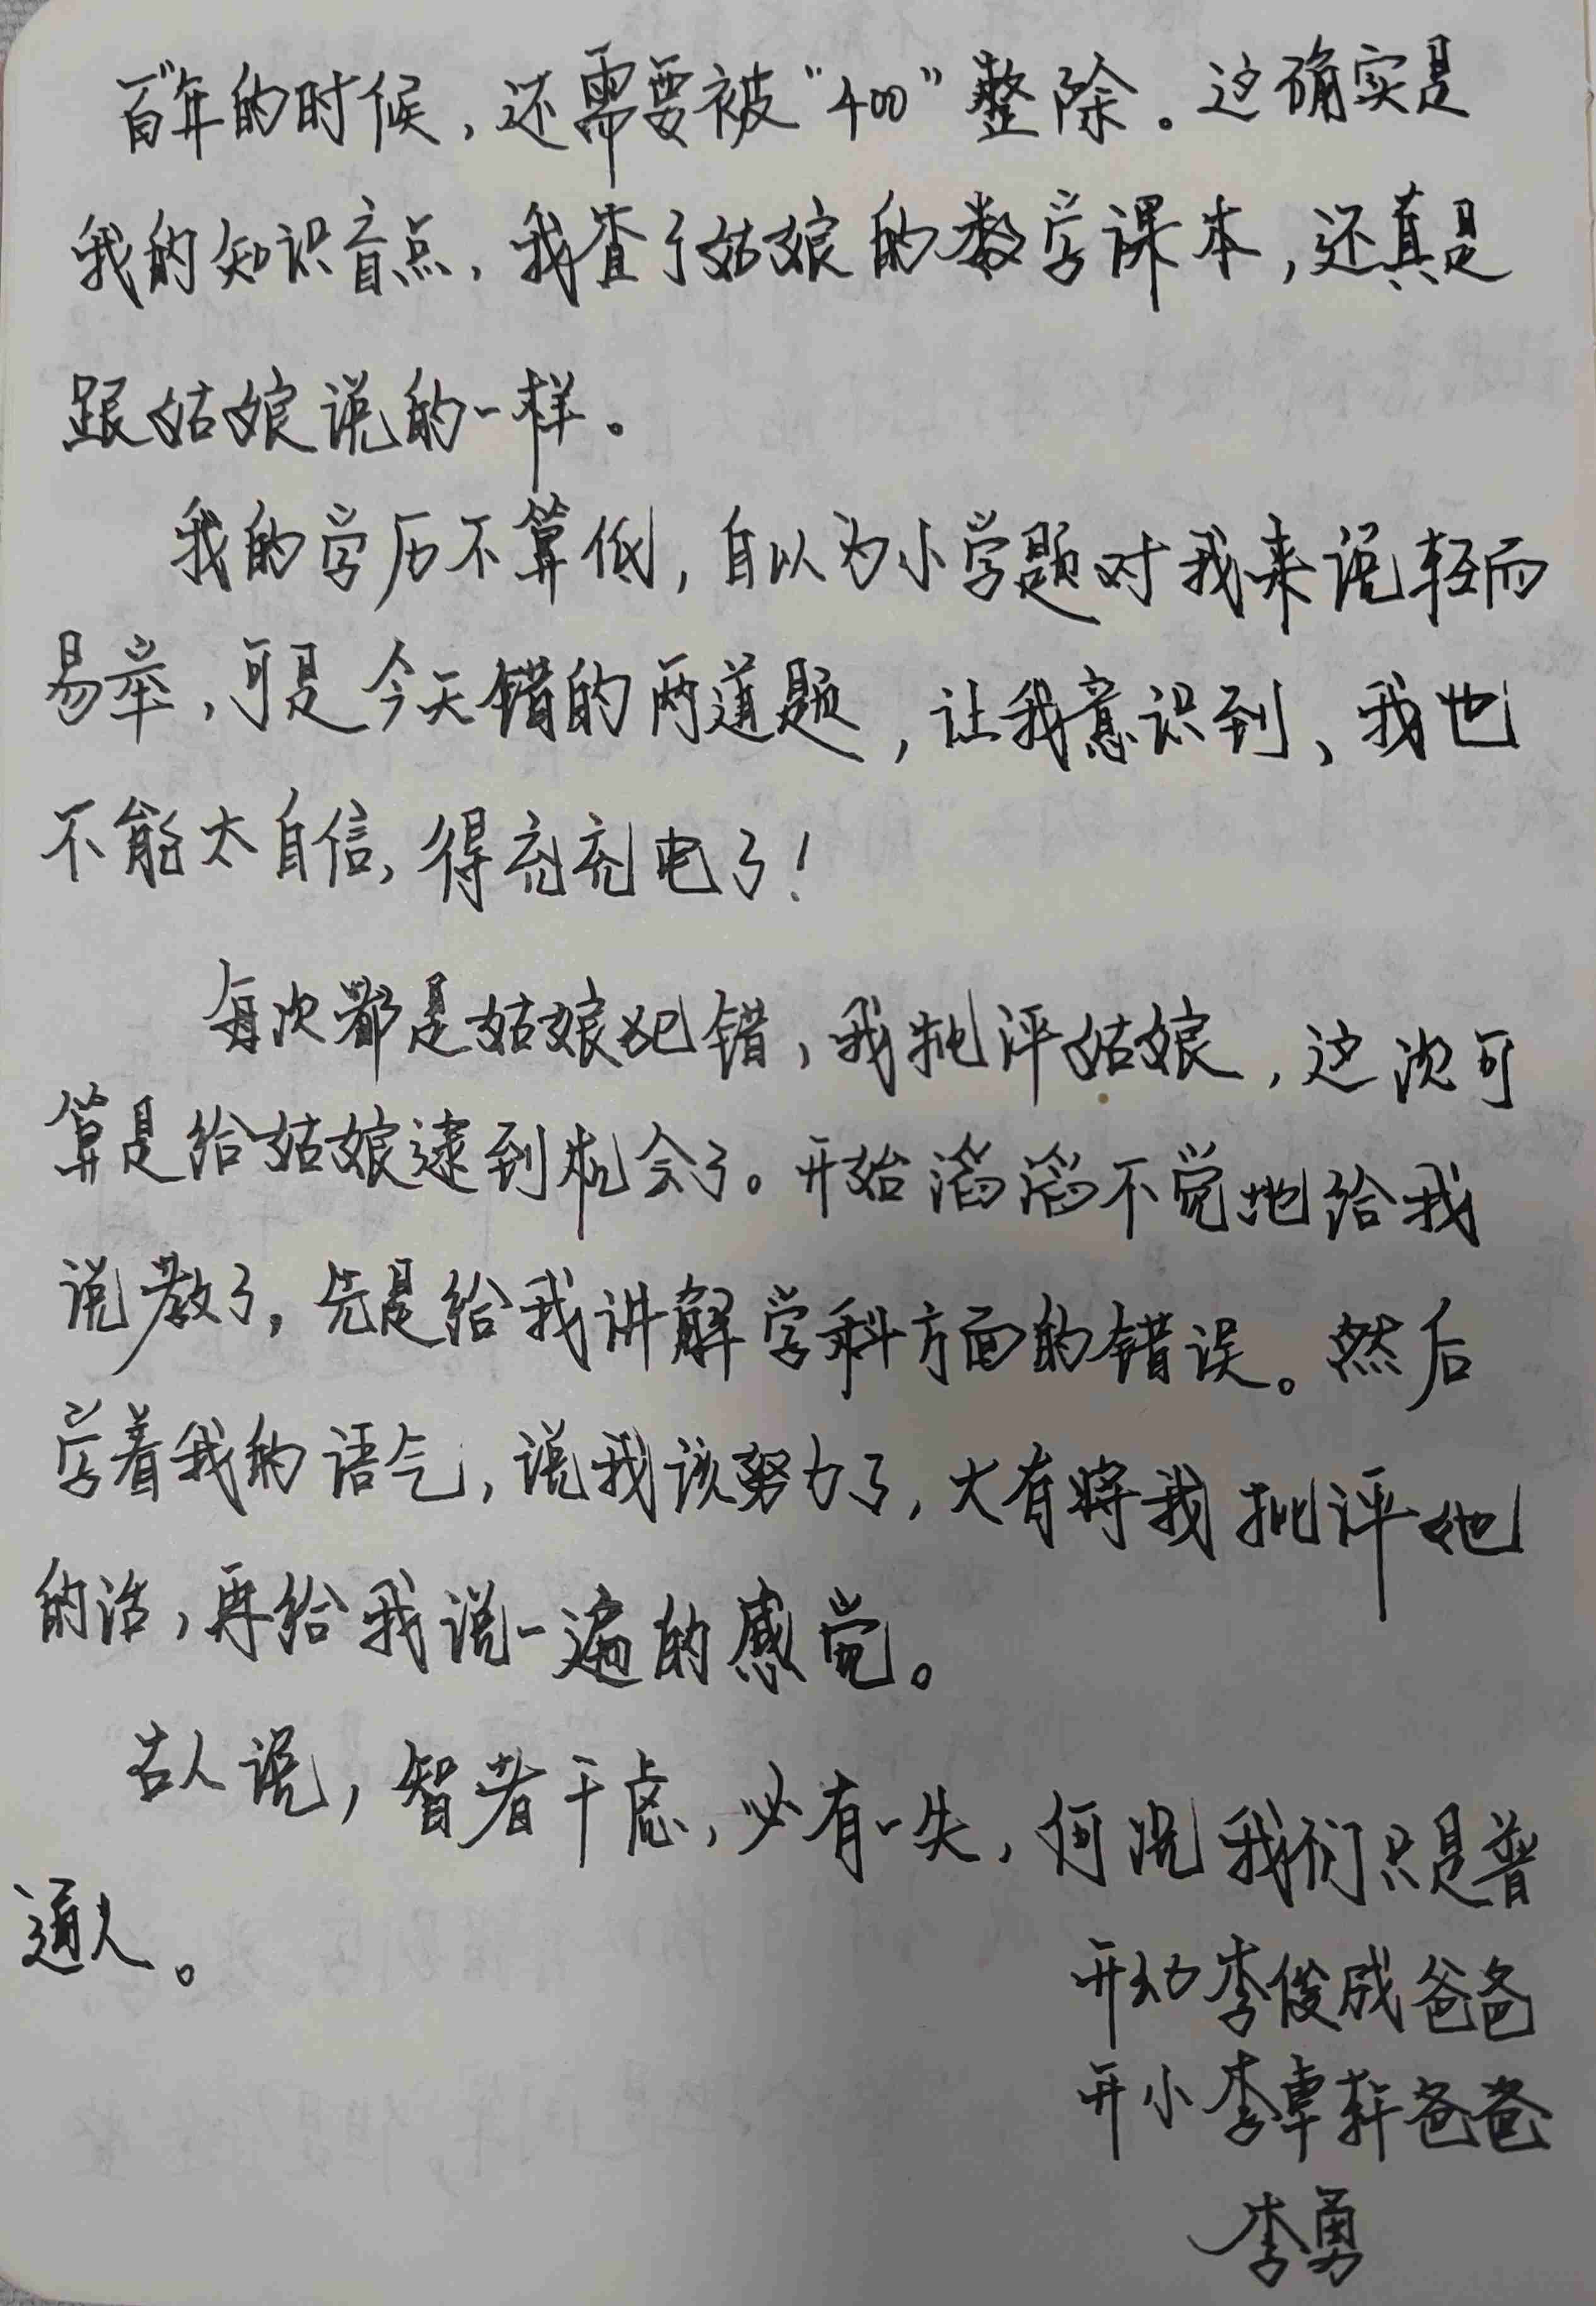 百年的时候，还需要被“400”整除。这确实是
我的知识盲点，我查了姑娘的数学课本，还真是
跟姑娘说的一样。
我的学历不算低，自以为小学题对我来说轻而
易举，可是今天错的两道题，让我意识到、我也
不能太自信，得充充电了！
每次都是姑娘犯错，我批评姑娘，这次可
算是给姑娘逮到机会了。开始滔滔不觉地给我
说教了，先是给我讲解学科方面的错误。然后
学着我的语气，说我该努力了，大有将我批评她
的话，再给我说一遍的感觉。
古人说，智者千虑，必有一失，何况我们只是普
通人。
开幼李俊成爸爸
开小李卓轩爸爸
李勇